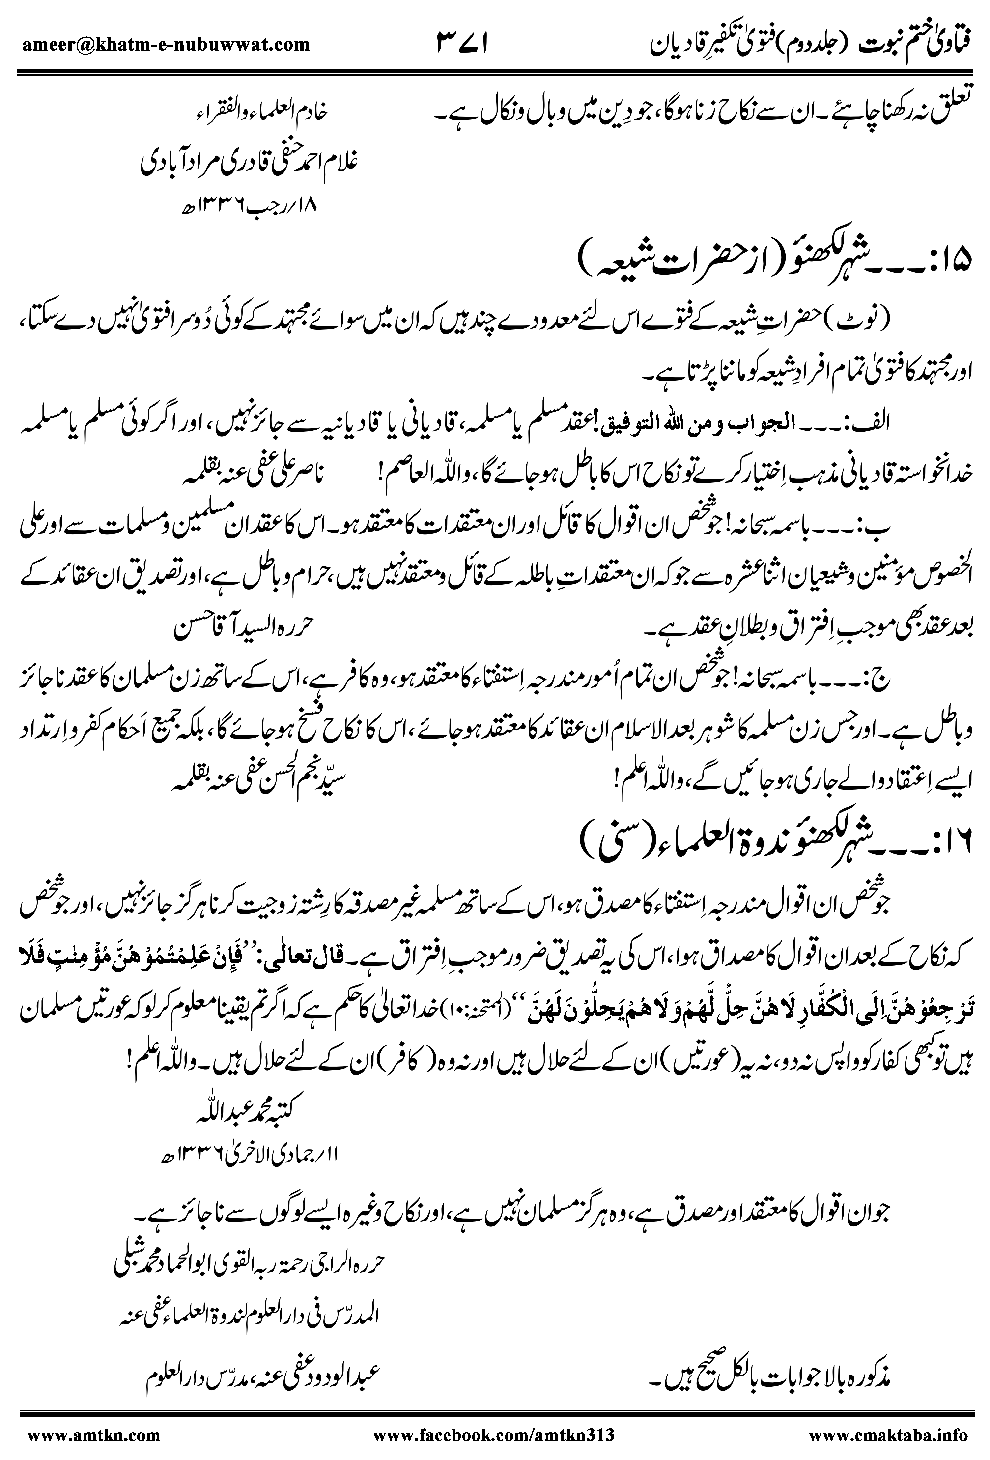 فتاویٰ ختم نبوت (جلد دوم) فتویٰ تکفیرِ قادیان ۳۷۱ ameer@khatm-e-nubuwwat.com
تعلق نہ رکھنا چاہئے۔ ان سے نکاح زنا ہوگا، جو دِین میں وبال و نکال ہے۔ خادم العلماء والفقراء
غلام احمد حنفی قادری مرادآبادی
۱۸/رجب ۱۳۳۶ھ
۱۵:۔۔۔شہر لکھنؤ (از حضرات شیعہ)
(نوٹ) حضراتِ شیعہ کے فتوے اس لئے معدودے چند ہیں کہ ان میں سوائے مجتہد کے کوئی دُوسرا فتویٰ نہیں دے سکتا،
اور مجتہد کا فتویٰ تمام افرادِ شیعہ کو ماننا پڑتا ہے۔
الف:۔۔۔ الجواب ومن اللّٰہ التوفیق! عقد مسلم یا مسلمہ، قادیانی یا قادیانیہ سے جائز نہیں، اور اگر کوئی مسلم یا مسلمہ
خدانخواستہ قادیانی مذہب اِختیار کرے تو نکاح اس کا باطل ہوجائے گا، واللہ العاصم! ناصر علی عفی عنہ بقلمہ
ب:۔۔۔ باسمہ سبحانہ! جو شخص ان اقوال کا قائل اور ان معتقدات کا معتقد ہو۔ اس کا عقد ان مسلمین و مسلمات سے اور علی
الخصوص مؤمنین و شیعیان اثنا عشرہ سے جو کہ ان معتقداتِ باطلہ کے قائل و معتقد نہیں ہیں، حرام و باطل ہے، اور تصدیق ان عقائد کے
بعد عقد بھی موجبِ اِفتراق و بطلانِ عقد ہے۔ حررہ السید آقا حسن
ج:۔۔۔ باسمہ سبحانہ! جو شخص ان تمام اُمور مندرجہ اِستفتاء کا معتقد ہو، وہ کافر ہے، اس کے ساتھ زن مسلمان کا عقد ناجائز
و باطل ہے۔ اور جس زن مسلمہ کا شوہر بعد الاسلام ان عقائد کا معتقد ہوجائے، اس کا نکاح فسخ ہوجائے گا، بلکہ جمیع اَحکام کفر و اِرتداد
ایسے اِعتقاد والے جاری ہوجائیں گے، واللہ اعلم! سیّد نجم الحسن عفی عنہ بقلمہ
۱۶:۔۔۔شہر لکھنؤ ندوۃ العلماء (سنی)
جو شخص ان اقوال مندرجہ اِستفتاء کا مصدق ہو، اس کے ساتھ مسلمہ غیر مصدقہ کا رِشتہ زوجیت کرنا ہرگز جائز نہیں، اور جو شخص
کہ نکاح کے بعد ان اقوال کا مصداق ہوا، اس کی یہ تصدیق ضرور موجبِ اِفتراق ہے۔ قال تعالٰی: ’’فَاِنْ عَلِمْتُمُوْھُنَّ مُؤْمِنٰتٍ فَلَا
تَرْجِعُوْھُنَّ اِلَی الْکُفَّارِ لَاھُنَّ حِلٌّ لَّھُمْ وَلَا ھُمْ یَحِلُّوْنَ لَھُنَّ‘‘ (الممتحنہ:۱۰) خدا تعالیٰ کا حکم ہے کہ اگر تم یقیناً معلوم کرلو کہ عورتیں مسلمان
ہیں تو کبھی کفار کو واپس نہ دو، نہ یہ (عورتیں) ان کے لئے حلال ہیں اور نہ وہ (کافر) ان کے لئے حلال ہیں۔ واللہ اعلم!
کتبہ محمد عبداللہ
۱۱/جمادی الاخریٰ ۱۳۳۶ھ
جو ان اقوال کا معتقد اور مصدق ہے، وہ ہرگز مسلمان نہیں ہے، اور نکاح وغیرہ ایسے لوگوں سے ناجائز ہے۔
حررہ الراجی رحمۃ ربہ القوی ابوالحماد محمد شبلی
المدرّس فی دارالعلوم لندوۃ العلماء عفی عنہ
مذکورہ بالا جوابات بالکل صحیح ہیں۔ عبدالودود عفی عنہ، مدرّس دارالعلوم
www.amtkn.com www.facebook.com/amtkn313 www.cmaktaba.info